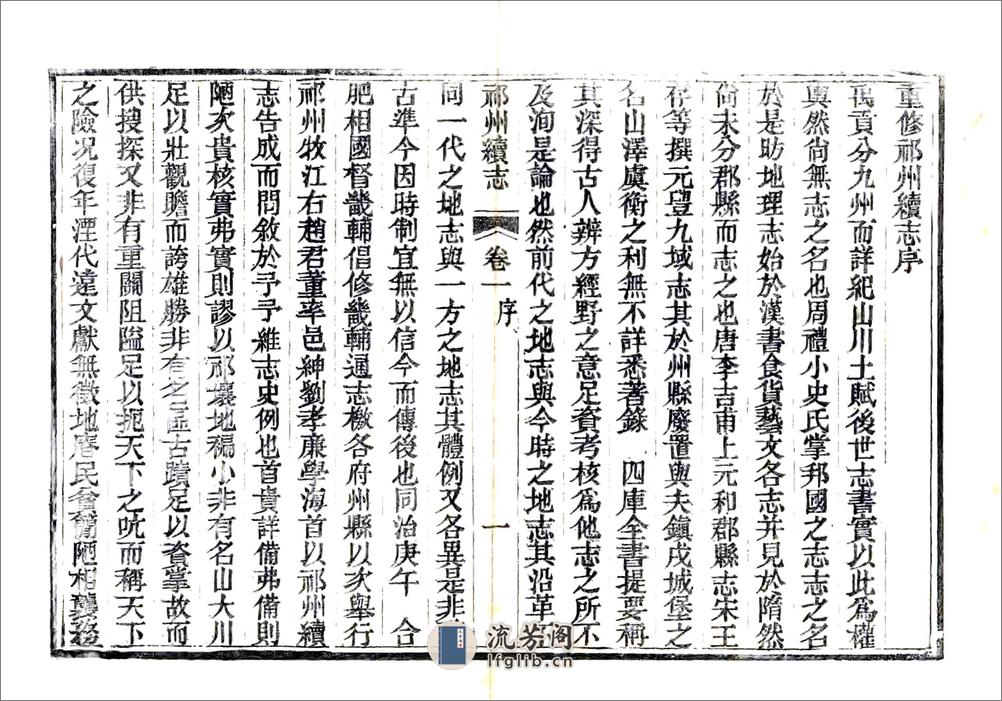 重修祁州續志序
禹貢分九州而詳紀山川土賦後世志書實以此為權
輿然尚無志之名也周禮小史氏掌邦國之志志之名
於是昉地理志始於漢書食貨藝文各志并見於隋然
尚未分郡縣而志之也唐李吉甫上元和郡縣志宋王
存等撰元豐九域志其於州縣廢置與夫鎮戍城堡之
名山澤虞衡之利無不詳悉著錄 四庫全書提要稱
其深得古人辨方經野之意足資考核為他志之所不
及洵是論也然前代之地志與今時之地志其沿革不
祁州續志 卷一 序 一
同一代之地志與一方之地志其體例又各異是非
古準今因時制宜無以信今而傳後也同治庚午 合
肥相國督畿輔倡修畿輔通志檄各府州縣以次舉行
祁州牧江右趙君董率邑紳劉孝廉學海首以祁州續
志告成而問敘於予予維志史例也首貴詳備弗備則
陋次貴核實弗實則謬以祁壤地褊小非有名山大川
足以壯觀瞻而誇雄勝非有名區古蹟足以資掌故而
供搜探又非有重關阻隘足以扼天下之吭而稱天下
之險况復年湮代遠文獻無徵地瘠民貧陋相襲務
流芳阁
lfglib.cn